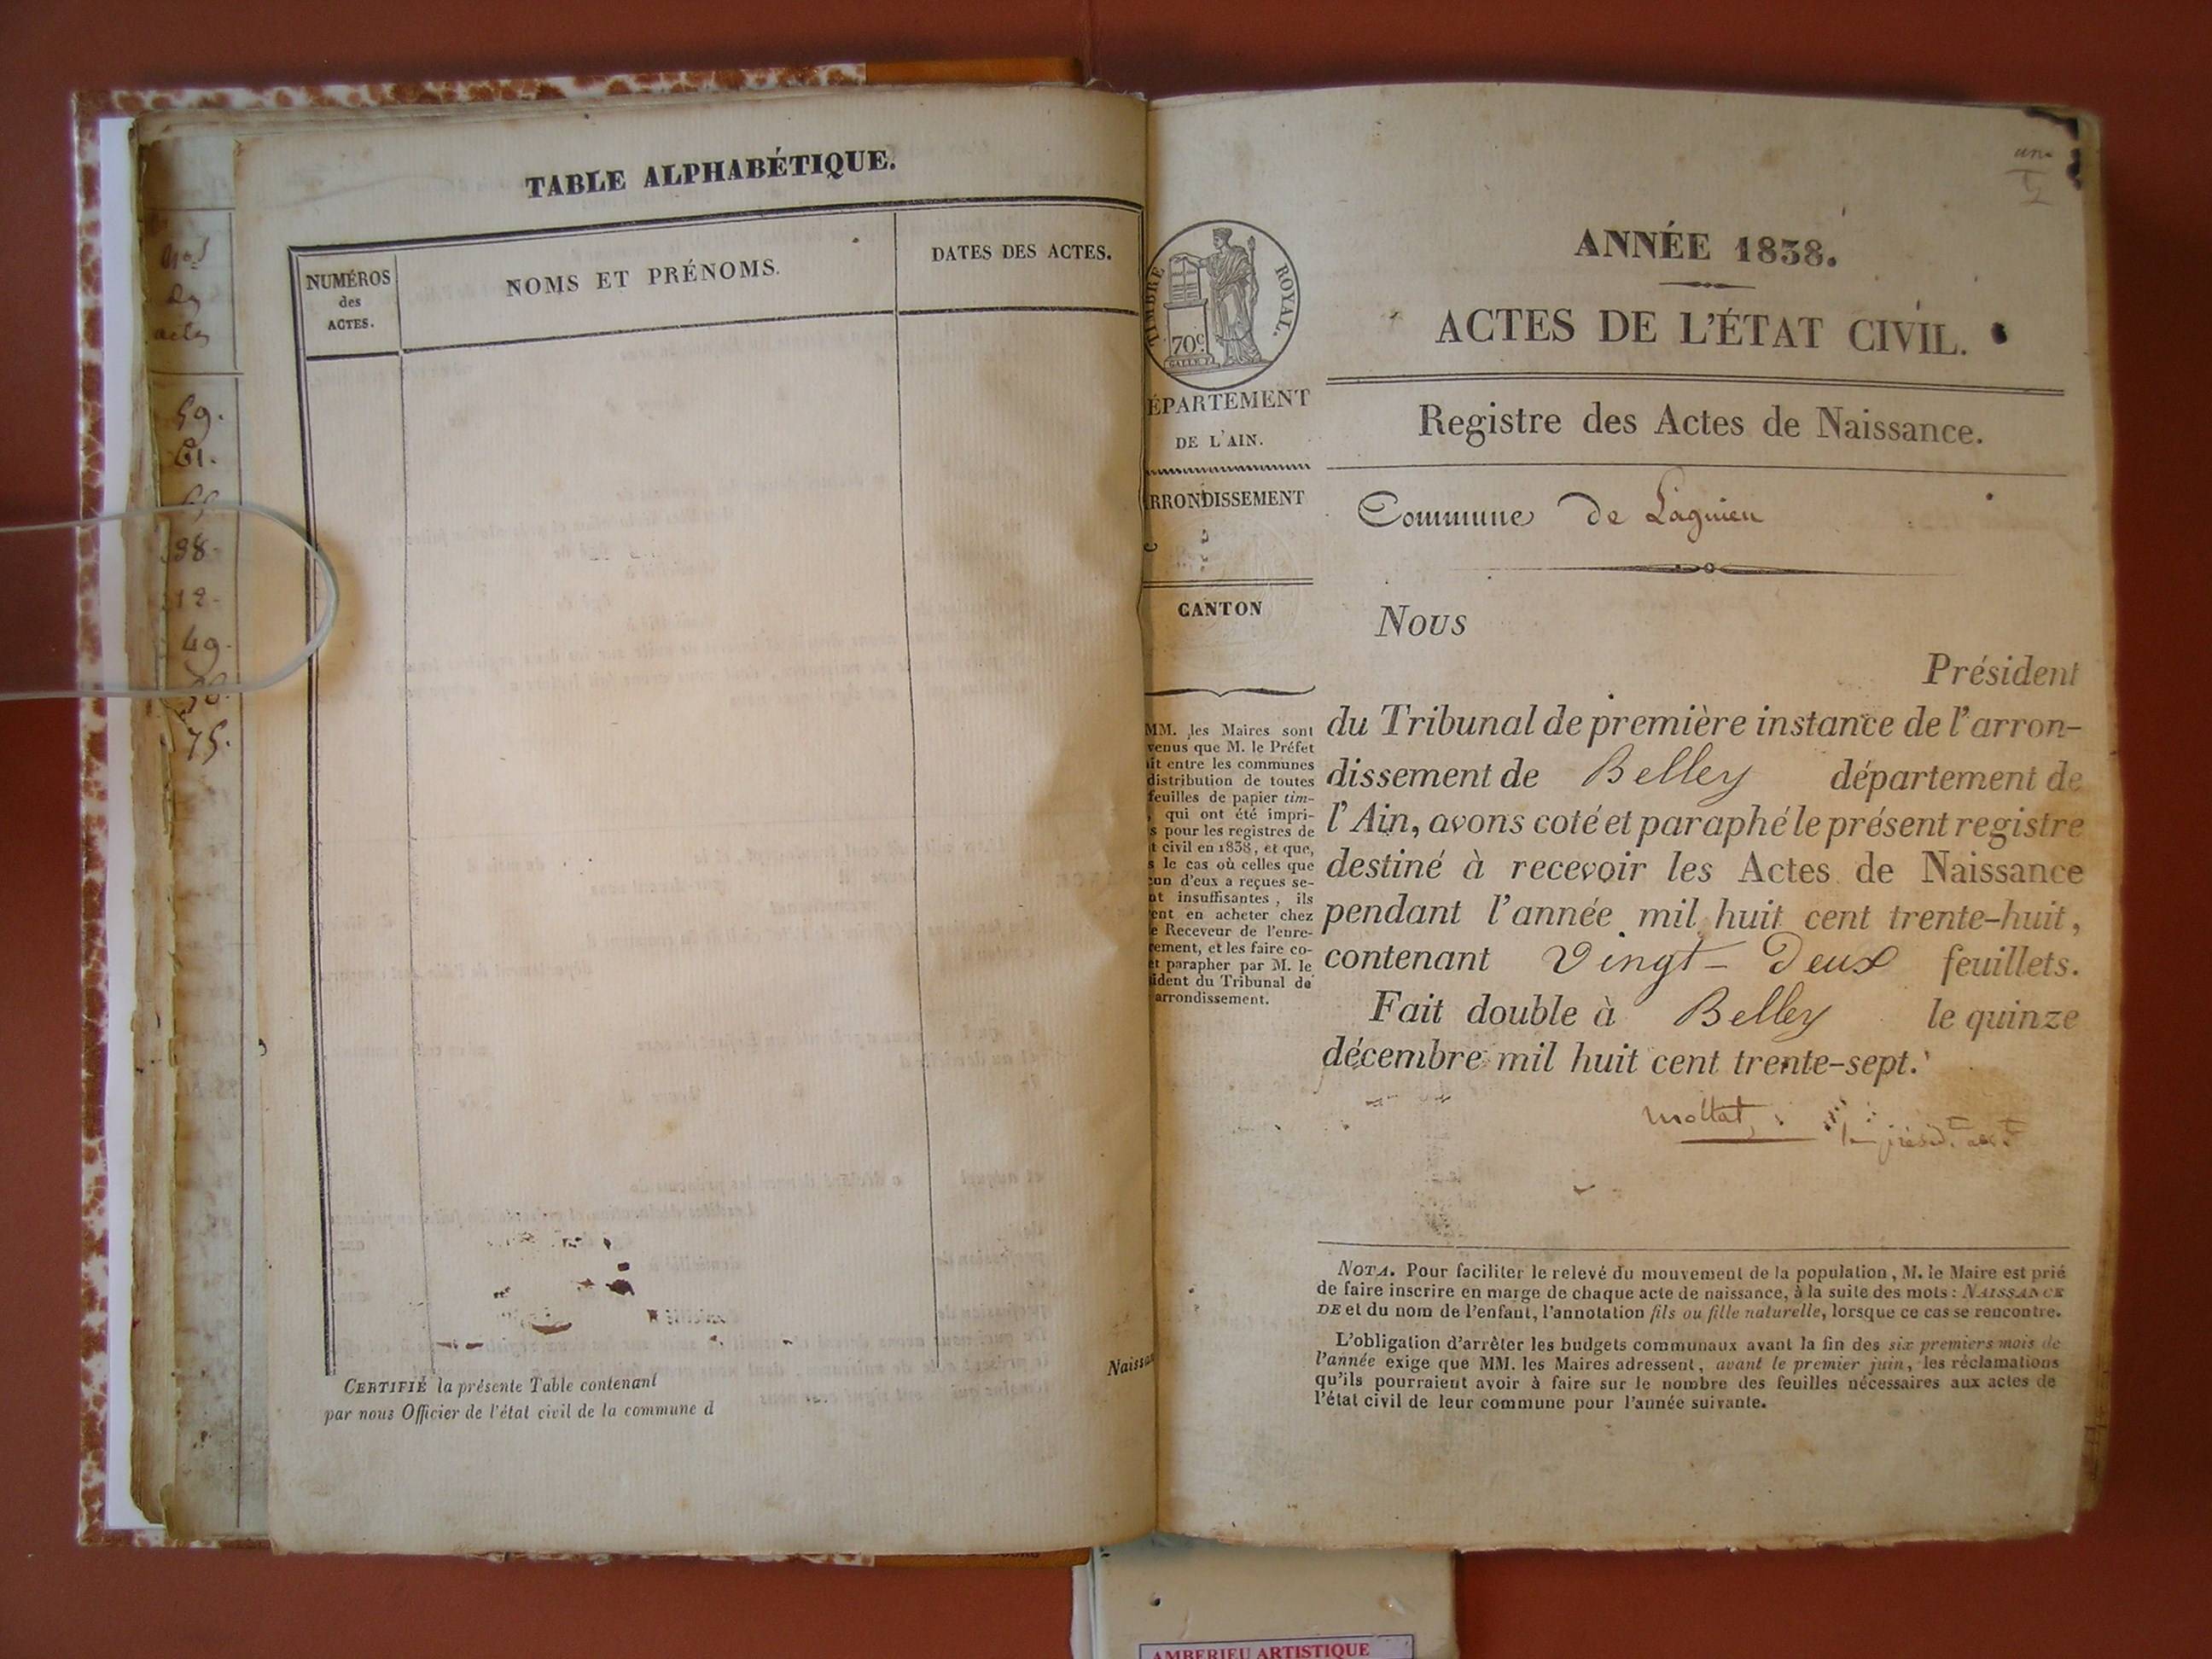 Nos
des
actes
59.
61.
98.
12.
49.
75.
TABLE ALPHABÉTIQUE.
NUMÉROS
des
ACTES.
NOMS ET PRÉNOMS.
DATES DES ACTES.
CERTIFIÉ la présente Table contenant
par nous Officier de l'état civil de la commune d
Naissan
un
ANNÉE 1838.
ACTES DE L'ÉTAT CIVIL.
Registre des Actes de Naissance.
TIMBRE ROYAL.
70c
GALLE F.
ÉPARTEMENT
DE L'AIN.
RRONDISSEMENT
CANTON
MM. les Maires sont
venus que M. le Préfet
ait entre les communes
distribution de toutes
feuilles de papier tim-
, qui ont été impri-
s pour les registres de
t civil en 1838, et que,
s le cas où celles que
cun d'eux a reçues se-
nt insuffisantes, ils
ent en acheter chez
e Receveur de l'enre-
rement, et les faire co-
et parapher par M. le
ident du Tribunal de
arrondissement.
Commune de Lagnieu
Nous
Président
du Tribunal de première instance de l'arron-
dissement de Belley département de
l'Ain, avons coté et paraphé le présent registre
destiné à recevoir les Actes de Naissance
pendant l'année mil huit cent trente-huit,
contenant Vingt-Deux feuillets.
Fait double à Belley le quinze
décembre mil huit cent trente-sept.
Mollat,
NOTA. Pour faciliter le relevé du mouvement de la population, M. le Maire est prié
de faire inscrire en marge de chaque acte de naissance, à la suite des mots: NAISSANCE
DE et du nom de l'enfant, l'annotation fils ou fille naturelle, lorsque ce cas se rencontre.
L'obligation d'arrêter les budgets communaux avant la fin des six premiers mois de
l'année exige que MM. les Maires adressent, avant le premier juin, les réclamations
qu'ils pourraient avoir à faire sur le nombre des feuilles nécessaires aux actes de
l'état civil de leur commune pour l'année suivante.
AMBERIEU ARTISTIQUE